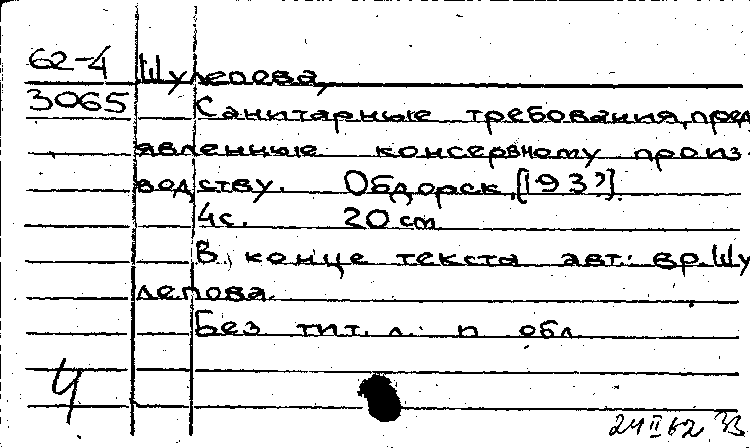 62-4 Шулепова,
3065 Санитарные требования, пред
явленные консервному произ-
водству. Обдорск, [193?].
4с. 20 cm
В конце текста авт.: вр. Шу
лепова.
Без тит. л. п обл
Ч
24 II 62